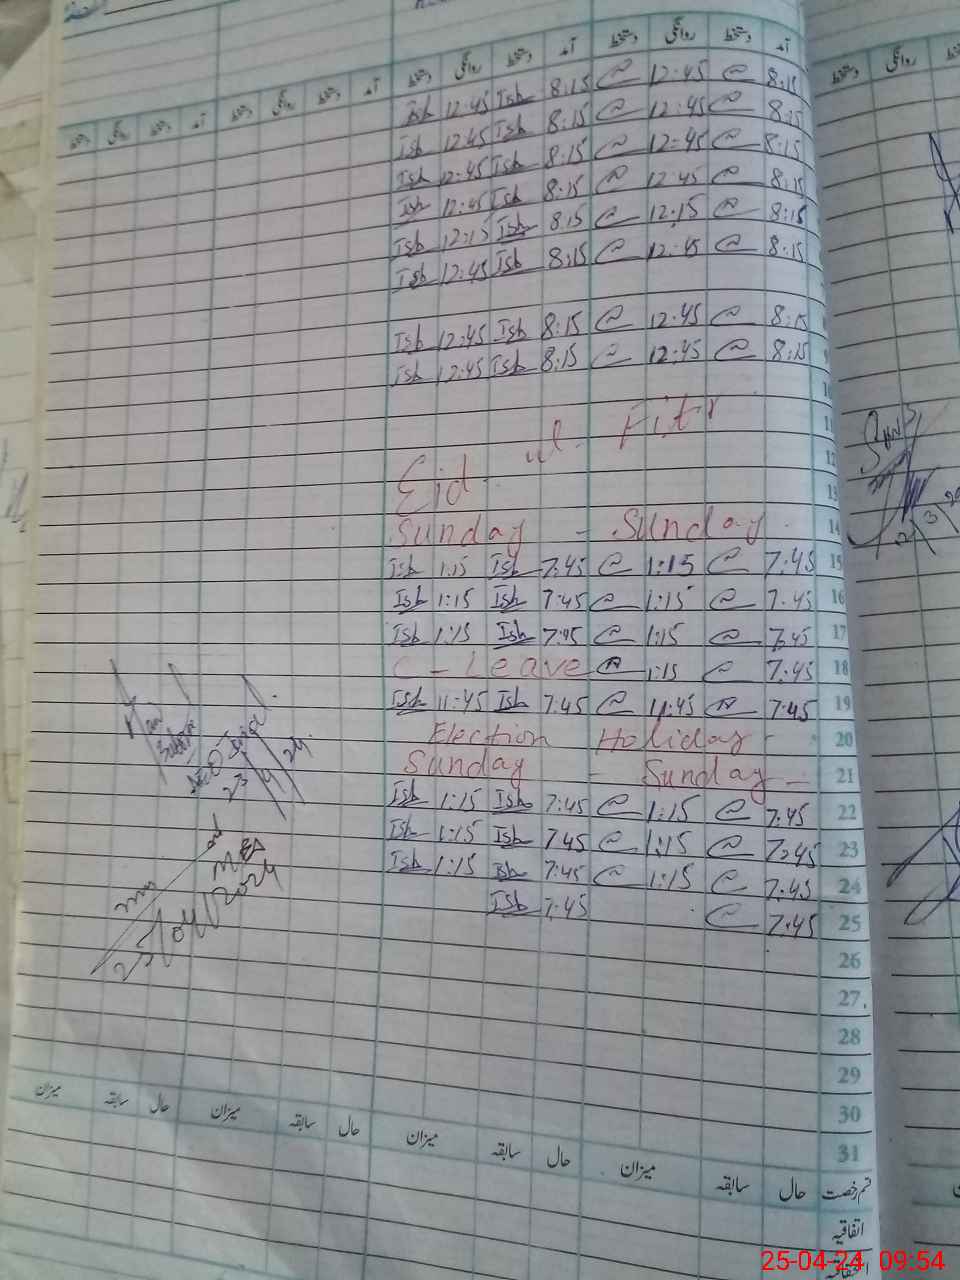 آمد دستخط روانگی دستخط آمد دستخط روانگی دستخط آمد دستخط روانگی دستخط آمد دستخط روانگی دستخط
Isb 12:45 Isb 8:15 @ 12:45 @ 8:15
Isb 12:45 Isb 8:15 @ 12:45 @ 8:15
Isb 12:45 Isb 8:15 @ 12:45 @ 8:15
Isb 12:45 Isb 8:15 @ 12:45 @ 8:15
Isb 12:15 Isb 8:15 @ 12:15 @ 8:15
Isb 12:45 Isb 8:15 @ 12:45 @ 8:15
Isb 12:45 Isb 8:15 @ 12:45 @ 8:15
Isb 12:45 Isb 8:15 @ 12:45 @ 8:15 9
10
11
Eid - ul - Fitr 12
13
Sunday - Sunday 14
Isb 1:15 Isb 7:45 @ 1:15 @ 7:45 15
Isb 1:15 Isb 7:45 @ 1:15 @ 7:45 16
Isb 1:15 Isb 7:45 @ 1:15 @ 7:45 17
C - Leave @ 1:15 @ 7:45 18
Isb 11:45 Isb 7:45 @ 11:45 @ 7:45 19
Election Holiday - 20
Sunday - Sunday - 21
Isb 1:15 Isb 7:45 @ 1:15 @ 7:45 22
Isb 1:15 Isb 7:45 @ 1:15 @ 7:45 23
Isb 1:15 Isb 7:45 @ 1:15 @ 7:45 24
Isb 7:45 @ 7:45 25
26
27
28
29
30
31
قسم رخصت حال سابقہ میزان حال سابقہ میزان حال سابقہ میزان حال سابقہ میزان
اتفاقیہ
25-04-24 09:54